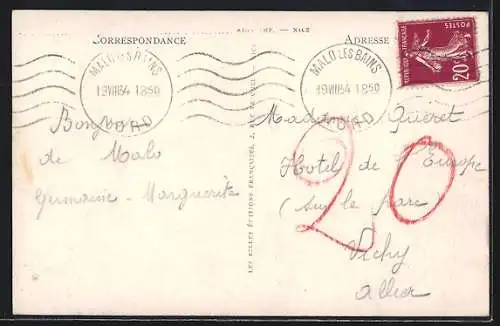 CORRESPONDANCE
ADRESSE
MALO LES BAINS
19 VIII 34 18 50
NORD
MALO LES BAINS
19 VIII 34 18 50
NORD
POSTES
20c
Bonjour
de Malo
Germaine - Marguerite
LES BELLES ÉDITIONS FRANÇAISES
Madame Quéret
Hotel de l'Europe
(sur le parc)
Vichy
Allier
20